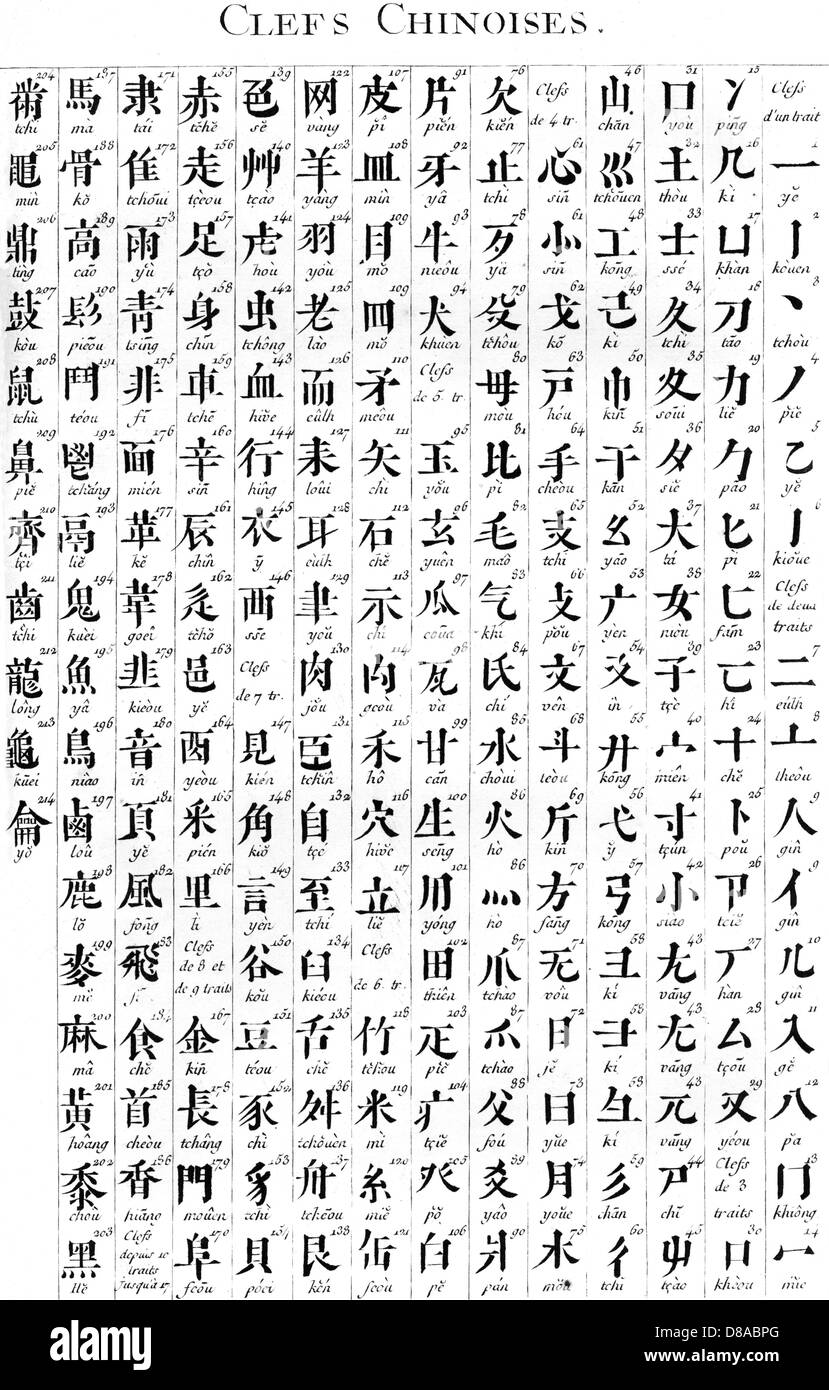 CLEFS CHINOISES.
Clefs
d'un trait
1
一
yĕ
2
丨
kouen
3
丶
tchòu
4
丿
pĭe
5
乙
yĕ
6
亅
kiŏue
Clefs
de deux
traits
7
二
eúlh
8
亠
theôu
9
人
gîn
9
亻
gîn
10
儿
gîn
11
入
gĕ
12
八
pă
13
冂
khiông
14
冖
mĭe
15
冫
pīng
16
几
kì
17
凵
khàn
18
刀
tāo
19
力
liĕ
20
勹
páo
21
匕
pì
22
匚
fām
23
匸
hì
24
十
chĕ
25
卜
poŭ
26
卩
tciĕ
27
厂
hàn
28
厶
tçoū
29
又
yéou
Clefs
de 3
traits
30
口
khèou
31
囗
yoù
32
土
thòu
33
士
ssé
34
夂
tchì
35
夊
soūi
36
夕
siĕ
37
大
tá
38
女
niòu
39
子
tçè
40
宀
miên
41
寸
tçún
42
小
siào
43
尢
vāng
43
尢
vāng
43
兀
vāng
44
尸
chī
45
屮
tçào
46
山
chān
47
巛
tchoūen
48
工
kōng
49
己
kì
50
巾
kīn
51
干
kān
52
幺
yāo
53
广
yèn
54
廴
ìn
55
廾
kòng
56
弋
ỹ
57
弓
kōng
58
彐
kí
58
彐
kí
58
彑
kí
59
彡
chān
60
彳
tchì
Clefs
de 4 tr.
61
心
sīn
61
⺗
sīn
62
戈
kŏ
63
戸
hóu
64
手
cheòu
65
支
tchi
66
攴
pŏu
67
文
vên
68
斗
teòu
69
斤
kīn
70
方
fāng
71
无
voû
72
日
jĕ
73
曰
yŭe
74
月
yoŭe
75
木
moŭ
76
欠
kién
77
止
tchì
78
歹
yă
79
殳
tchôu
80
毋
moù
81
比
pì
82
毛
maô
83
气
khí
84
氏
chí
85
水
choùi
86
火
hò
86
灬
hò
87
爪
tchào
87
爫
tchào
88
父
foú
89
爻
yâo
90
爿
pán
91
片
pién
92
牙
yâ
93
牛
nieôu
94
犬
khuèn
Clefs
de 5. tr.
95
玉
yŏu
96
玄
yuên
97
瓜
coūa
98
瓦
và
99
甘
cān
100
生
sēng
101
用
yóng
102
田
thiên
103
疋
piĕ
104
疒
tçiĕ
105
癶
pŏ
106
白
pĕ
107
皮
pî
108
皿
mìn
109
目
mŏ
109
罒
mŏ
110
矛
meôu
111
矢
chì
112
石
chĕ
113
示
chí
114
禸
geòu
115
禾
hô
116
穴
hiuĕ
117
立
liĕ
Clefs
de 6. tr.
118
竹
tchou
119
米
mì
120
糸
miĕ
121
缶
feòu
122
网
vàng
123
羊
yâng
124
羽
yòu
125
老
lào
126
而
eûlh
127
耒
loûi
128
耳
eùlh
129
聿
yoŭ
130
肉
joŭ
131
臣
tchîn
132
自
tçé
133
至
tchí
134
臼
kiéou
135
舌
chĕ
136
舛
tchoùèn
137
舟
tcheōu
138
艮
kén
139
色
sĕ
140
艸
tçào
141
虍
hoù
142
虫
tchông
143
血
hiŭe
144
行
hîng
145
衣
ȳ
146
襾
ssè
Clefs
de 7 tr.
147
見
kién
148
角
kiŏ
149
言
yèn
150
谷
kŏu
151
豆
téou
152
豕
chì
153
豸
tchì
154
貝
póei
155
赤
tchĕ
156
走
tçèou
157
足
tçŏ
158
身
chīn
159
車
tchē
160
辛
sīn
161
辰
chîn
162
辵
tchŏ
163
邑
yĕ
164
酉
yèou
165
釆
pién
166
里
lì
Clefs
de 8 et
de 9 traits
167
金
kīn
178
長
tchâng
179
門
mouên
170
阜
feōu
171
隶
tái
172
隹
tchoūi
173
雨
yù
174
靑
tsīng
175
非
fī
176
面
mién
177
革
kĕ
178
韋
goeî
179
韭
kieòu
180
音
īn
181
頁
yĕ
182
風
fōng
183
飛
fī
184
食
chĕ
185
首
cheòu
186
香
hiāng
Clefs
depuis 10
traits
jusqu'à 17
187
馬
mà
188
骨
kŏ
189
高
cāo
190
髟
pieōu
191
鬥
téou
192
鬯
tcháng
193
鬲
liĕ
194
鬼
kuèi
195
魚
yû
196
鳥
niào
197
鹵
loù
198
鹿
lŏ
199
麥
mĕ
200
麻
mâ
201
黃
hoâng
202
黍
choù
203
黑
hĕ
204
黹
tchì
205
黽
mìn
206
鼎
tìng
207
鼓
kòu
208
鼠
tchù
209
鼻
piĕ
210
齊
tçî
211
齒
tchì
212
龍
lông
213
龜
kūei
214
龠
yŏ
alamy
Image ID: D8ABPG
www.alamy.com